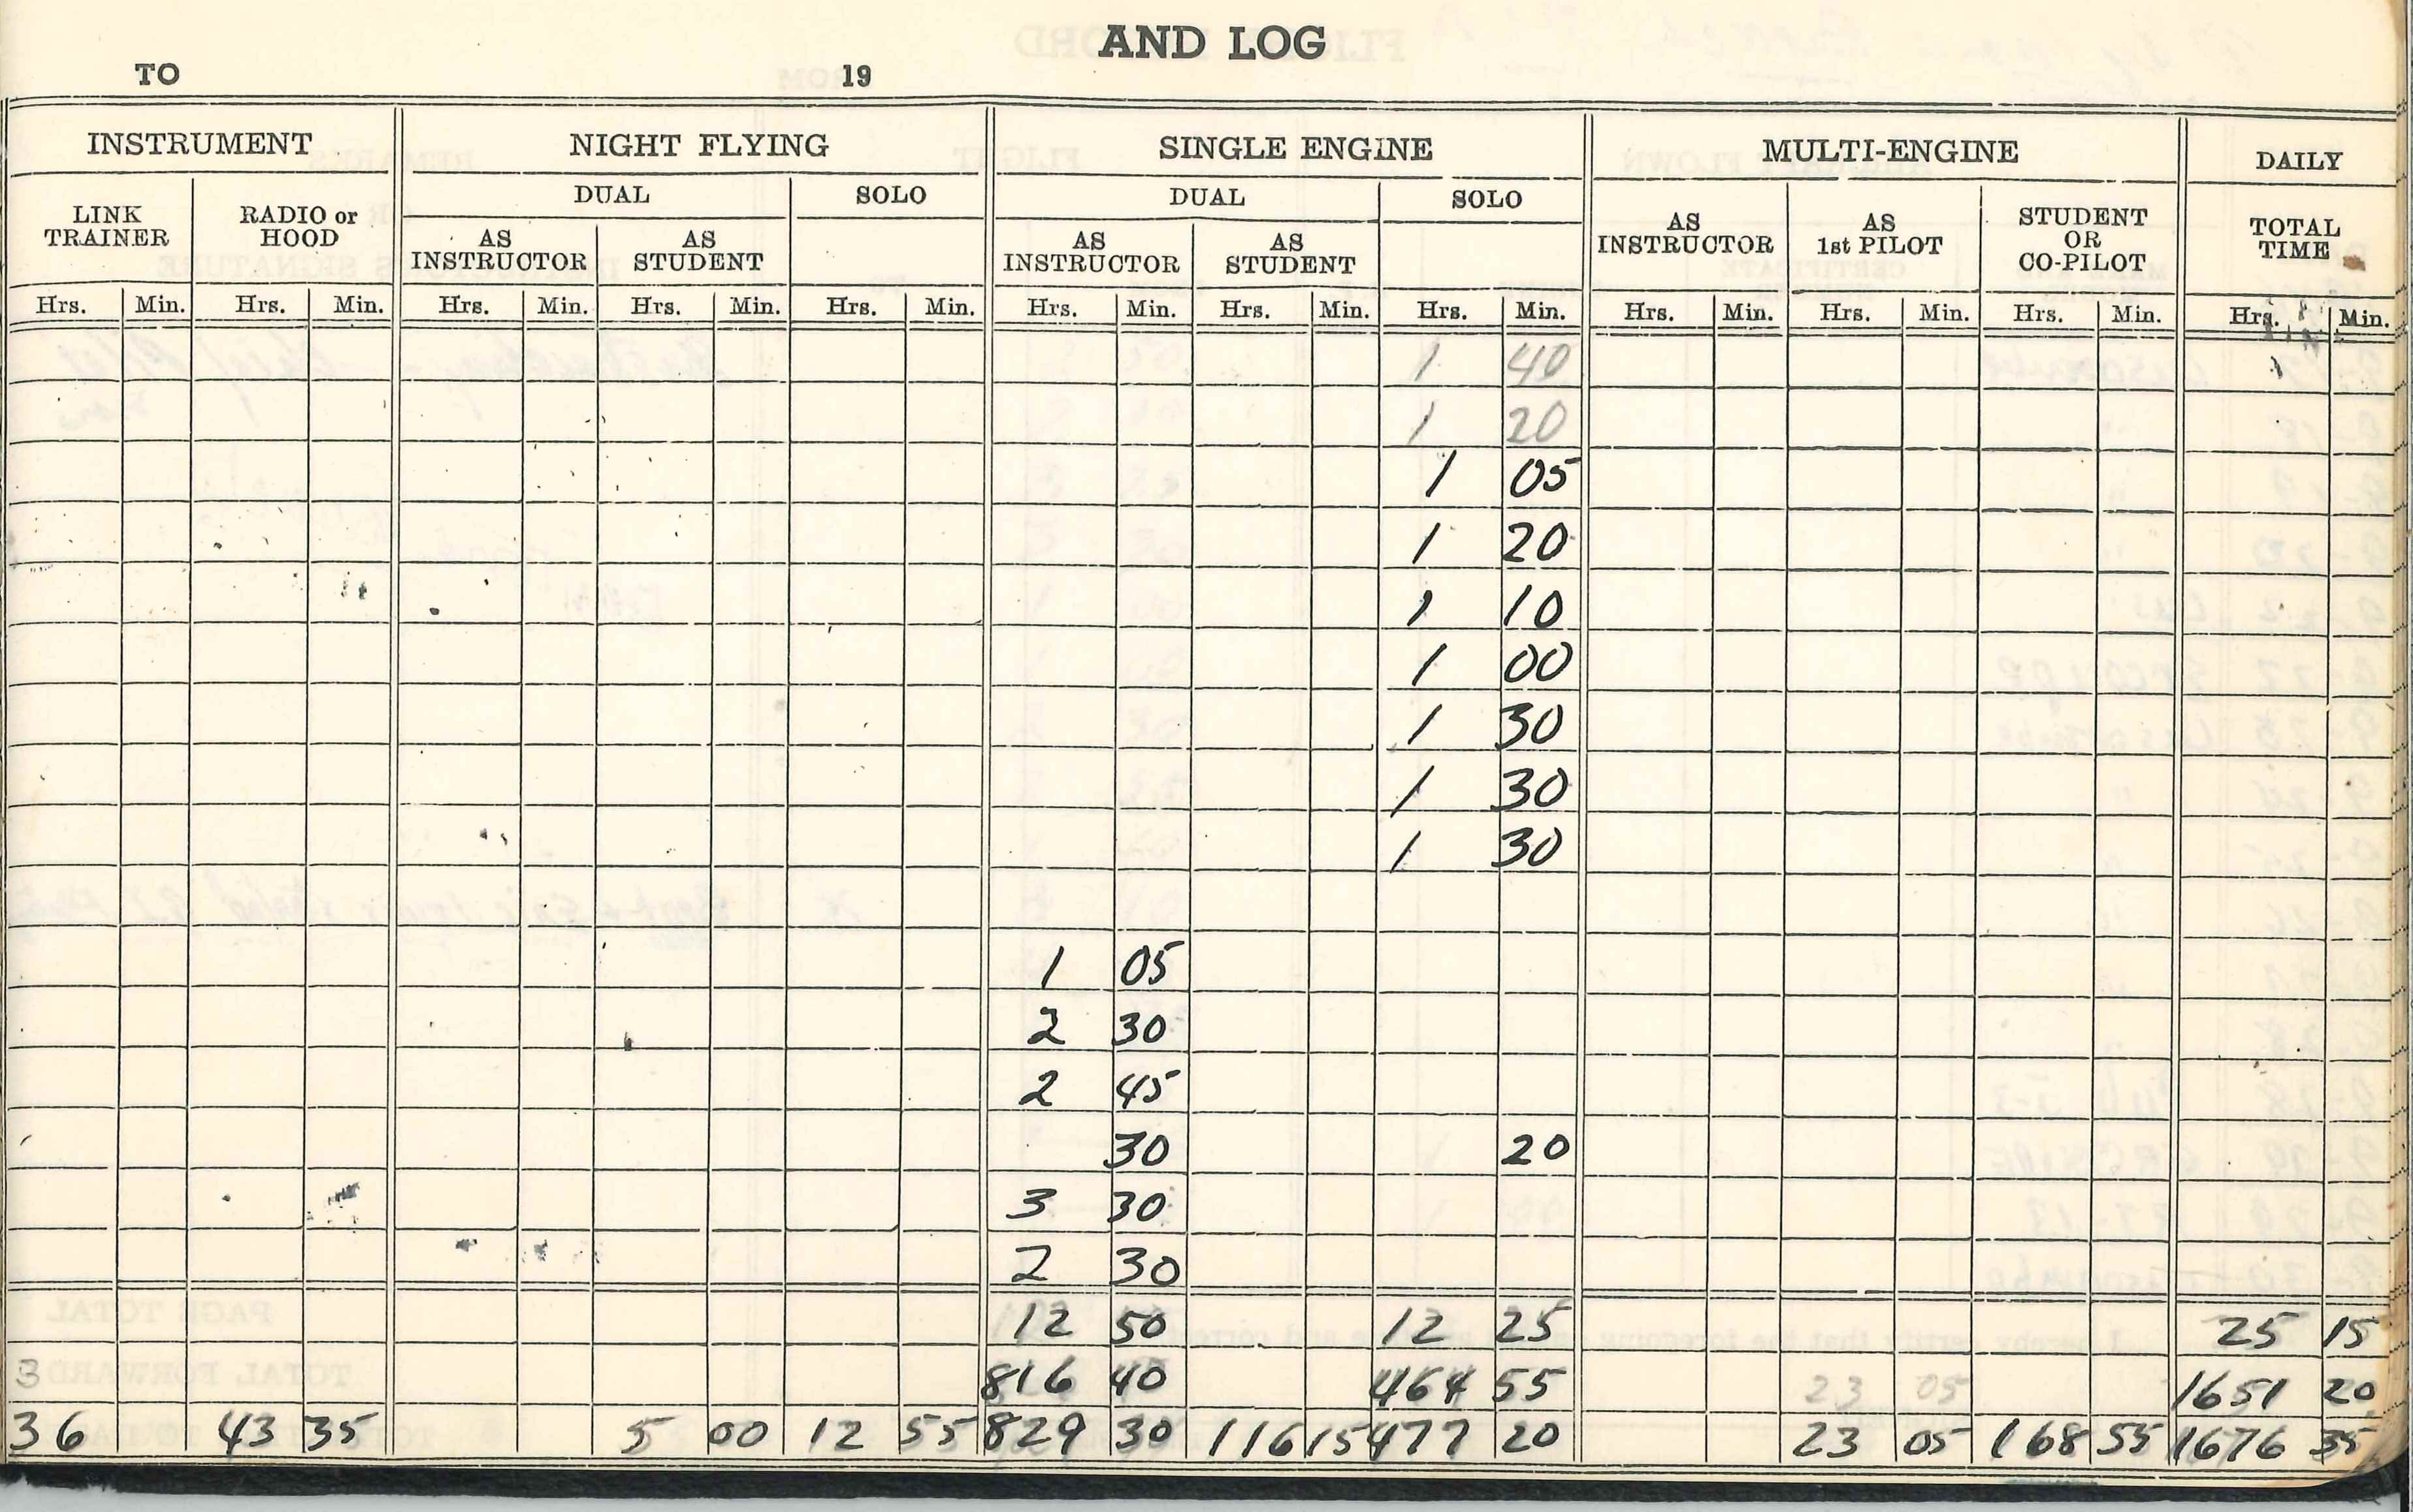 AND LOG
TO 19
INSTRUMENT NIGHT FLYING SINGLE ENGINE MULTI-ENGINE DAILY
DUAL SOLO DUAL SOLO
LINK TRAINER RADIO or HOOD AS INSTRUCTOR AS STUDENT AS INSTRUCTOR AS STUDENT AS INSTRUCTOR AS 1st PILOT STUDENT OR CO-PILOT TOTAL TIME
Hrs. Min. Hrs. Min. Hrs. Min. Hrs. Min. Hrs. Min. Hrs. Min. Hrs. Min. Hrs. Min. Hrs. Min. Hrs. Min. Hrs. Min. Hrs. Min.
1 40
1 20
1 05
1 20
1 10
1 00
1 30
1 30
1 30
1 05
2 30
2 45
30 20
3 30
2 30
12 50 12 25 25 15
3 816 40 464 55 23 05 1651 20
36 43 35 5 00 12 55 829 30 116 15 477 20 23 05 168 55 1676 35